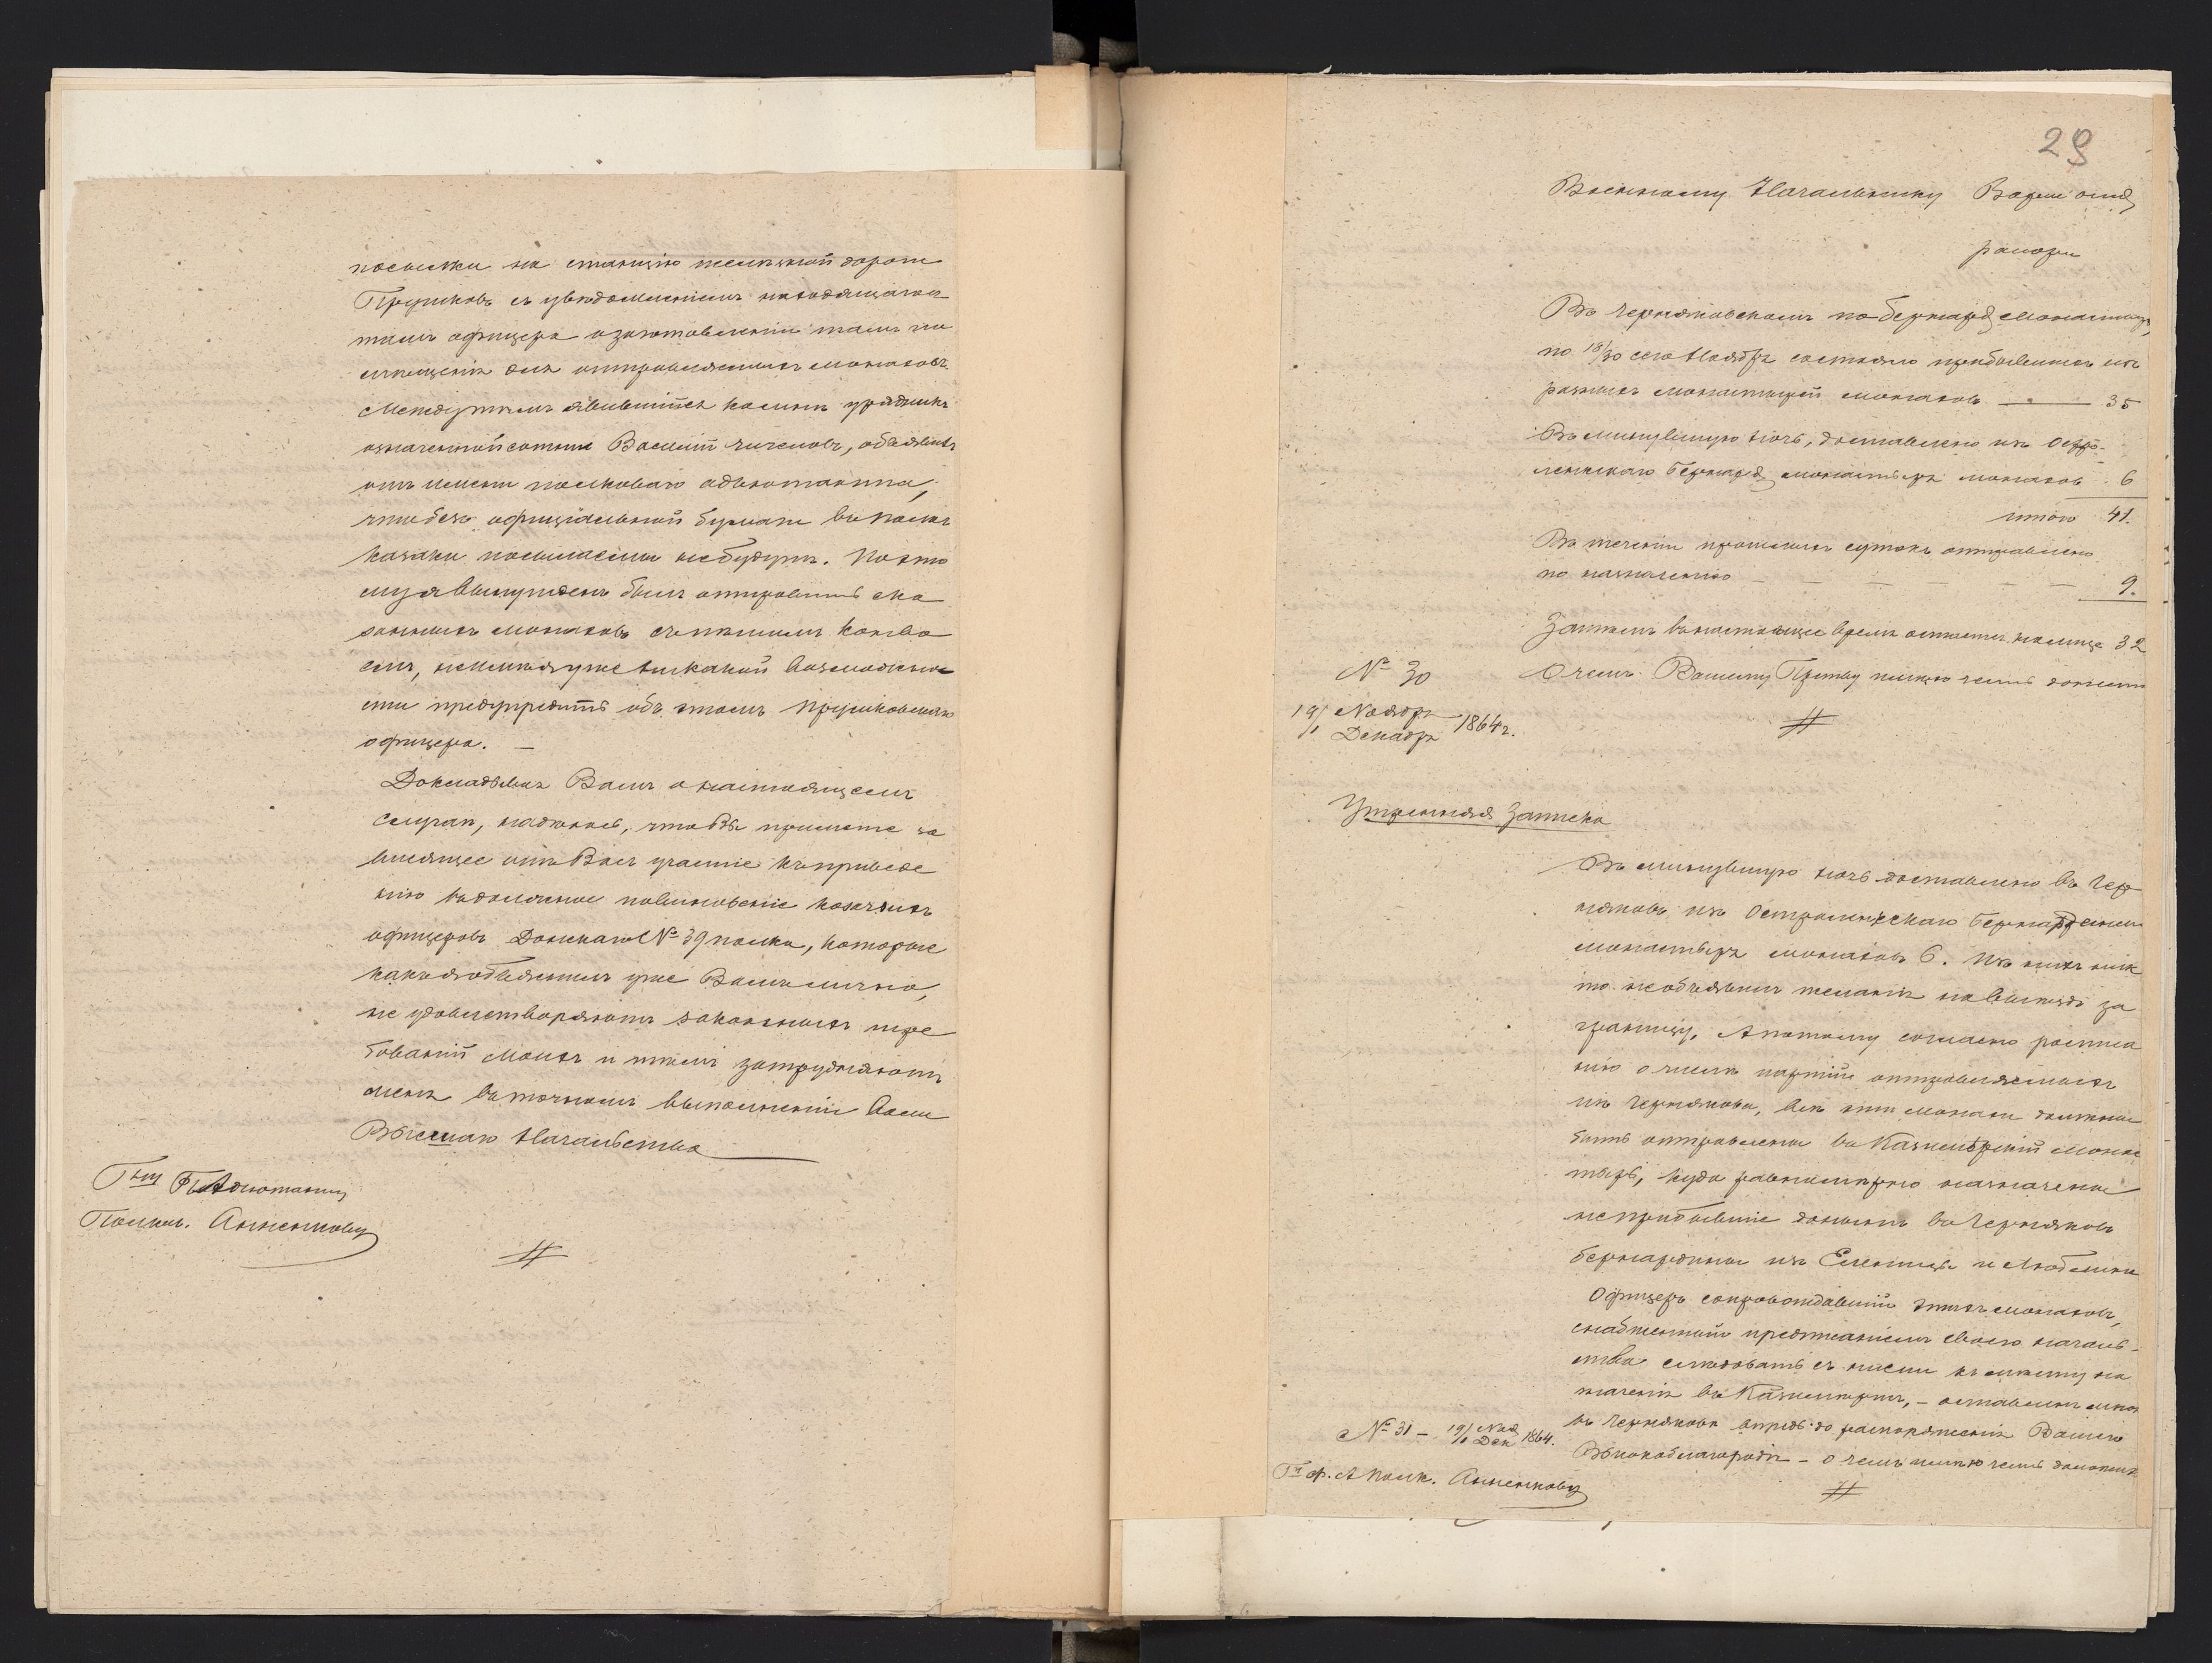 посылки на станцію желѣзной дороги
Прушковъ съ увѣдомленіемъ находящагося
тамъ офицера о заготовленіи тамъ по
мѣщенія для отправляемыхъ монаховъ.
Между тѣмъ явившійся ко мнѣ урядникъ
означенной сотни Василій Чичеловъ, объявилъ
отъ имени полковаго адъютанта,
что безъ офиціальной бумаги въ полкъ
казаки посылаемы не будутъ. Поэто
му я вынужденъ былъ отправить ска
занныхъ монаховъ съ пѣшимъ конво
емъ, не имѣя уже никакой возможно
сти предупредить объ этомъ Прушковскаго
офицера. —
Докладывая Вамъ о настоящемъ
случаѣ, надѣюсь, что Вы примете за
висящее отъ Васъ участіе къ приведе
нію въ должное повиновеніе казачьихъ
офицеровъ Донскаго № 39 полка, которые
какъ я объяснилъ уже Вамъ лично,
не удовлетворяютъ законныхъ тре
бованій моихъ и тѣмъ затрудняютъ
меня въ точномъ выполненіи воли
Высшаго Начальства
Гну Фл. Адъютанту
Полков. Анненкову
29
Военному Начальнику Варш отд
рапортъ
Въ Черняковскомъ по-бернард монастырѣ,
по 18/30 сего Ноября состояло прибывшихъ изъ
разныхъ монастырей монаховъ — 35
Въ минувшую ночь, доставлено изъ Остро-
ленскаго Бернард монастыря монаховъ . 6
итого 41.
Въ теченіи прошлыхъ сутокъ отправлено
по назначенію — — — — — 9.
Затѣмъ въ настоящее время остается на лицо 32
О чемъ Вашему Прству имѣю честь донести
№ 30
19/1 Ноября Декабря 1864 г.
Утренняя Записка
Въ минувшую ночь доставлено въ Чер
няковъ изъ Остроленскаго бернардскаго
монастыря монаховъ 6. Изъ нихъ ник
то не объявилъ желанія на выѣздъ за
границу. А потому согласно росписа
нію о числѣ партіи отправляемыхъ
изъ Чернякова, всѣ эти монахи должны
быть отправлены въ Казимѣрскій монас
тырь, куда равномѣрно назначены
не прибывшіе донынѣ въ Черняковъ
бернардины изъ и Люблина
Офицеръ сопровождавшій этихъ монаховъ,
снабженный предписаніемъ своего началь-
ства слѣдовать съ ними къ мѣсту на
значенія въ Казимѣржъ, – оставленъ мною
въ Черняковѣ впредь до распоряженія Вашего
Высокоблагородія – о чемъ имѣю честь доложить
№ 31 – 19/1 Ноя Дек 1864.
Гу Ф. А Полк. Анненкову